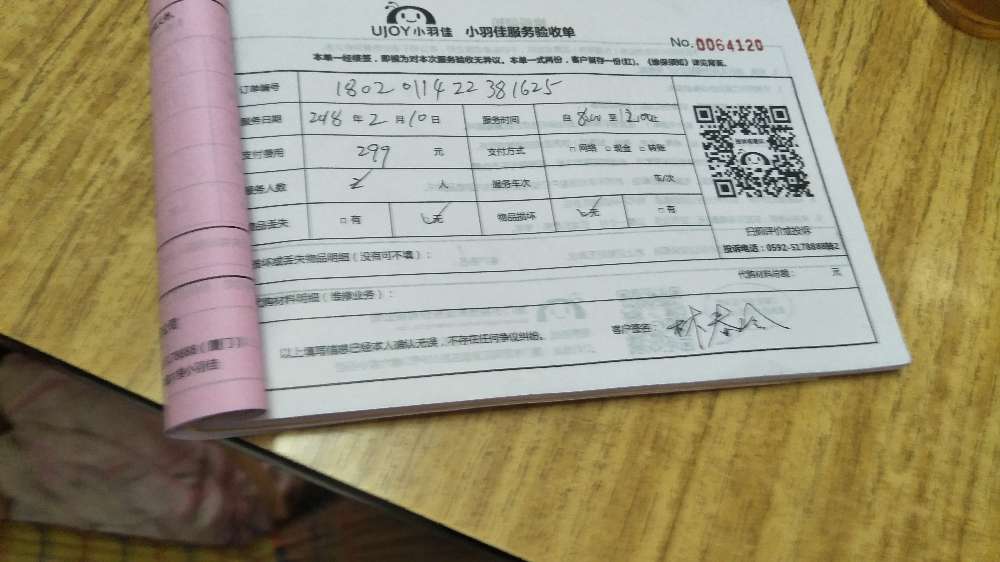 UJOY小羽佳 小羽佳服务验收单
No.0064120
本单一经签签，即视为对本次服务验收无异议。本单一式两份，客户留存一份(红)。《维保须知》详见背面。
订单编号 1802011422381625
服务日期 2018 年 2 月 10 日 服务时间 自 8:00 至 12:00止
支付费用 299 元 支付方式 □ 网络 □ 现金 □ 转账
服务人数 2 人 服务车次 车/次
物品丢失 □ 有 无 物品损坏 无 □ 有
扫码评价或投诉
投诉电话：0592-5178888转2
损坏或丢失物品明细（没有可不填）：
代购材料明细（维修业务）： 代购材料总额： 元
以上填写信息已经本人确认无误，不存在任何争议纠纷。 客户签名：
78888（厦门）
小羽佳